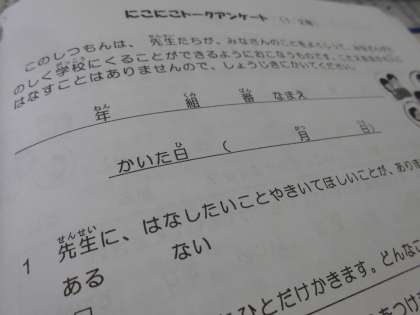 にこにこトークアンケート (1・2年)
このしつもんは、先生たちが、みなさんのことをよくしって、みなさんがた
のしく学校にくることができるようにおこなうものです。
はなすことはありませんので、しょうじきにかいてください。
年 組 番 なまえ
かいた日 ( 月 日)
1 先生に、はなしたいことやきいてほしいことが、ありま
ある ない
ひとだけかきます。どんなこ
をつけ